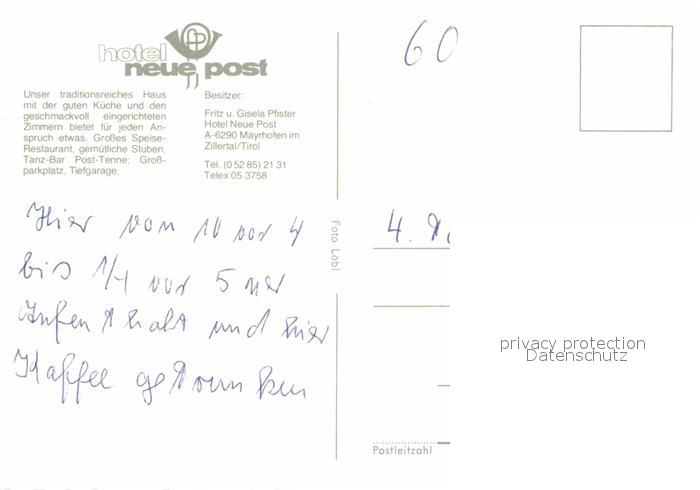 hotel
neue post
Unser traditionsreiches Haus
mit der guten Küche und den
geschmackvoll eingerichteten
Zimmern bietet für jeden An-
spruch etwas. Großes Speise-
Restaurant, gemütliche Stuben,
Tanz-Bar Post-Tenne; Groß-
parkplatz, Tiefgarage.
Besitzer:
Fritz u. Gisela Pfister
Hotel Neue Post
A-6290 Mayrhofen im
Zillertal/Tirol
Tel. (0 52 85) 21 31
Telex 05 3758
60
Hier von 10 vor 4
bis 1/4 vor 5 
Aufenthalt und hier
Kaffee getrunken
Foto Löbl
4.
privacy protection
Datenschutz
Postleitzahl